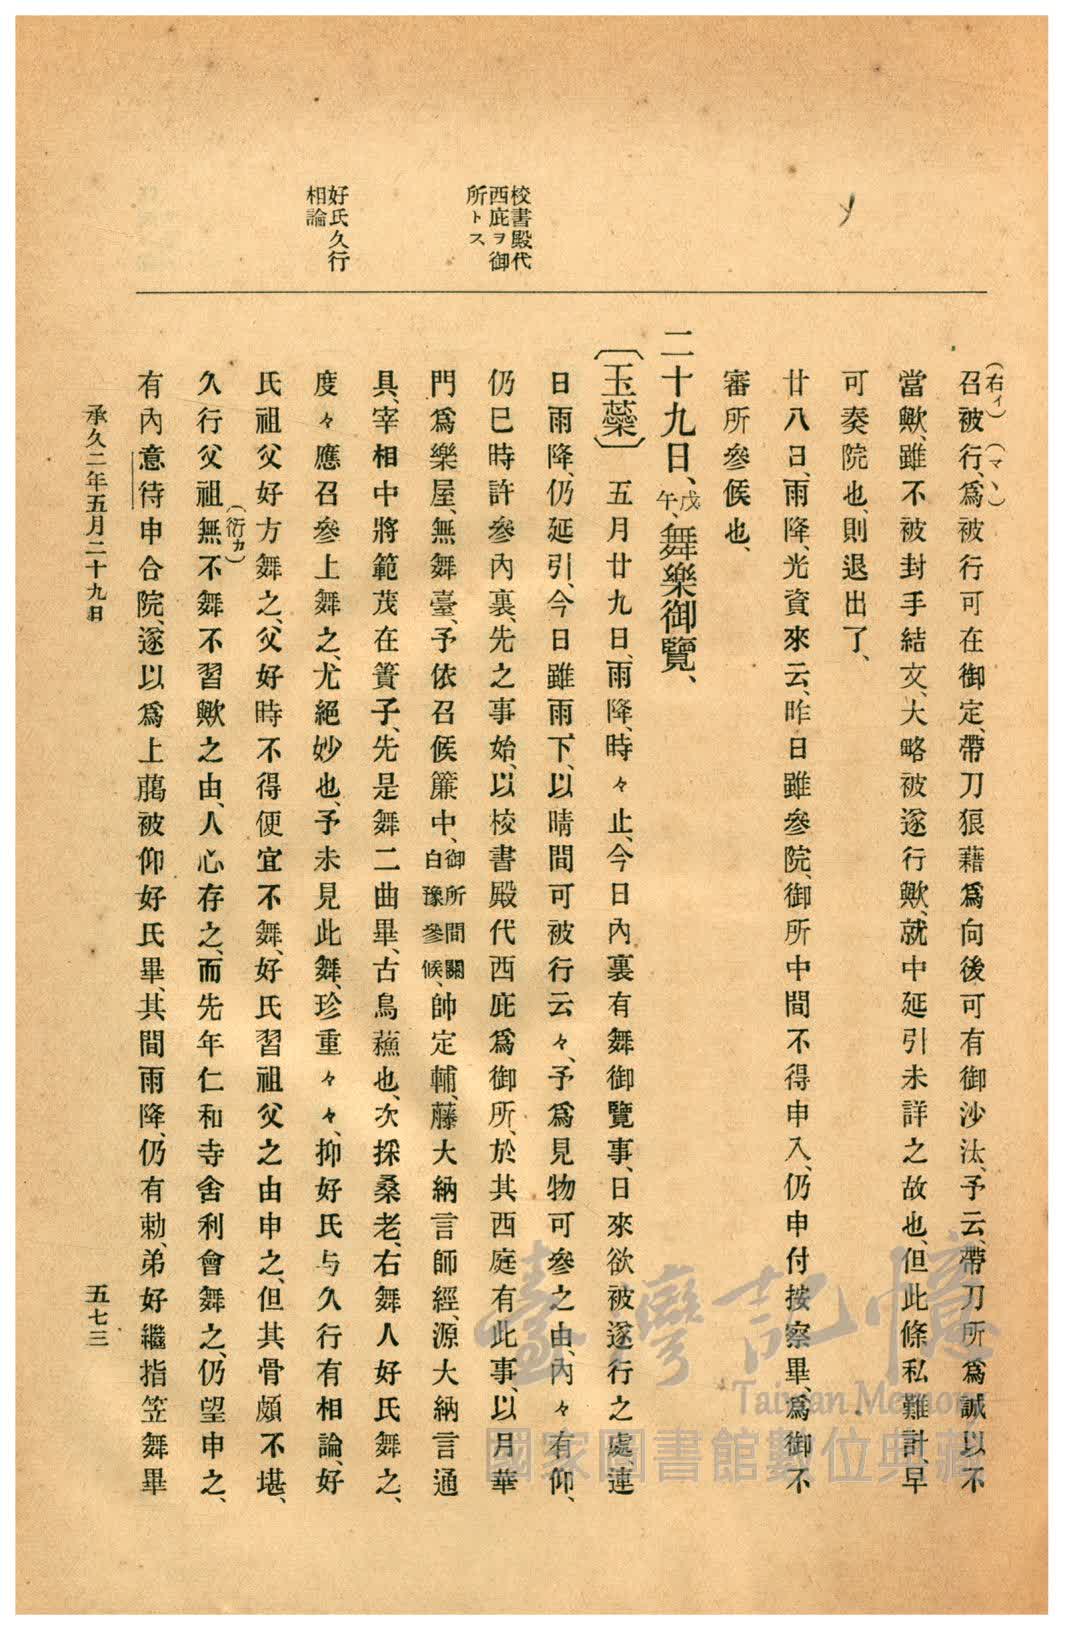 校書殿代
西庇ヲ御
所トス
好氏久行
相論
(右イ)
(マヽ)
召被行、爲被行可在御定、帶刀狼藉爲向後可有御沙汰、予云、帶刀所爲誠以不
當歟、雖不被封手結文、大略被遂行歟、就中延引未詳之故也、但此條私難計、早
可奏院也、則退出了、
廿八日、雨降、光資來云、昨日雖參院、御所中間不得申入、仍申付按察畢、爲御不
審所參候也、
二十九日、戊午、舞樂御覽、
〔玉蘂〕五月廿九日、雨降、時々止、今日內裏有舞御覽事、日來欲被遂行之處連
日雨降、仍延引、今日雖雨下、以晴間可被行云々、予爲見物可參之由、內々有仰、
仍巳時許參內裏、先之事始、以校書殿代西庇爲御所、於其西庭有此事、以月華
門爲樂屋、無舞臺、予依召候簾中、御所間關白豫參候、帥定輔、藤大納言師經、源大納言通
具、宰相中將範茂在簀子、先是舞二曲畢、古鳥蘓也、次採桑老、右舞人好氏舞之、
度々應召參上舞之、尤絕妙也、予未見此舞、珍重々々、抑好氏与久行有相論、好
氏祖父好方舞之、父好時不得便宜不舞、好氏習祖父之由申之、但其骨頗不堪、
(衍カ)
久行父祖無不舞不習歟之由、人心存之、而先年仁和寺舍利會舞之、仍望申之、
有內意待申合院、遂以爲上﨟被仰好氏畢、其間雨降、仍有勅、弟好繼指笠舞畢
承久二年五月二十九日
五七三
臺灣記憶
Taiwan Memory
國家圖書館數位典藏